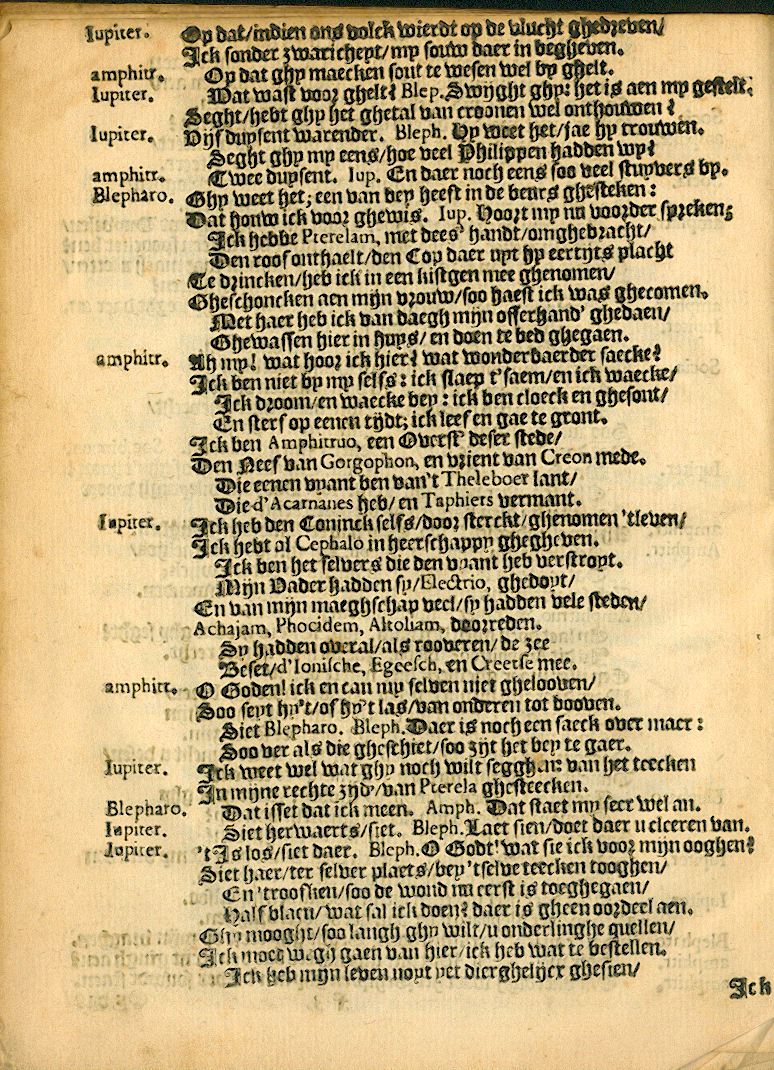 Iupiter. Op dat/indien ons volck wierdt op de vlucht ghedreven/
Ick sonder zwaricheyt/my souw daer in begheven.
amphitr. Op dat ghy maecken sout te wesen wel by ghelt.
Iupiter. Wat wast voor ghelt? Blep. Swijght ghy: het is aen my gestelt.
Seght/hebt ghy het ghetal van croonen wel onthouwen?
Iupiter. Vijf duysent warender. Bleph. Hy weet het/jae hy trouwen.
Seght ghy my eens/hoe veel Philippen hadden wy?
amphitr. Twee duysent. Iup. En daer noch eens soo veel stuyvers by.
Blepharo. Ghy weet het; een van bey heeft in de beurs ghesteken:
Dat houw ick voor ghewis. Iup. Hoort my nu voorder spreken;
Ick hebbe Pterelam, met dees' handt/omghebracht/
Den roof onthaelt/den Cop daer uyt hy eertijts placht
Te drincken/heb ick in een kistgen mee ghenomen/
Gheschoncken aen mijn vrouw/soo haest ick was ghecomen.
Met haer heb ick van daegh mijn offerhand' ghedaen/
Ghewassen hier in huys/ en doen te bed ghegaen.
amphitr. Ah my! wat hoor ick hier? wat wonderbaerder saecke?
Ick ben niet by my selfs: ick slaep t'saem/en ick waecke/
Ick droom/en waecke bey: ick ben cloeck en ghesont/
En sterf op eenen tijdt; ick leef en gae te gront.
Ick ben Amphitruo, een Overst' deser stede/
Den Neef van Gorgophon, en vrient van Creon mede.
Die eenen vyant ben van't Theleboer lant/
Die d'Acarnanes heb/ en Taphiers vermant.
Iupiter. Ick heb den Coninck selfs/door sterckt/ghenomen 'tleven/
Ick hebt al Cephalo in heerschappy ghegheven.
Ick ben het selvers die den vyant heb verstroyt.
Mijn Vader hadden sy/Electrio, ghedoyt/
En van mijn maeghschap veel/sy hadden vele steden/
Achajam, Phocidem, Aktoliam, doorreden.
Sy hadden overal/als rooveren/ de zee
Beset/d'Ionische, Egeesch, en Creetse mee.
amphitr. O Goden! ick en can my selven niet ghelooven/
Soo seyt hy't/of hy't las/van onderen tot booven.
Siet Blepharo. Bleph. Daer is noch een saeck over maer:
Soo ver als die gheschiet/soo zijt het bey te gaer.
Iupiter. Ick weet wel wat ghy noch wilt segghen: van het teecken
In mijne rechte zijd'/van Pterela ghesteecken.
Blepharo. Dat isset dat ick meen. Amph. Dat staet my seer wel an.
Iupiter. Siet herwaerts/siet. Bleph. Laet sien/doet daer u cleeren van.
Iupiter. 't Is los/siet daer. Bleph. O Godt! wat sie ick voor mijn ooghen?
Siet haer/ter selver plaets/bey 'tselve teecken tooghen/
En 'troofken/soo de wond nu eerst is toeghegaen/
Half blaeu/wat sal ick doen? daer is gheen oordeel aen.
Ghy mooght/soo langh ghy wilt/u onderlinghe quellen/
Ick moet wegh gaen van hier/ick heb wat te bestellen.
Ick heb mijn leven noyt yet dierghelijcx ghesien/
Ick